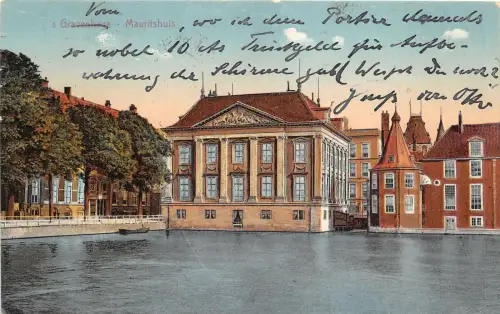 s Gravenhage - Mauritshuis
Vom
wo ich dem Portier damals
so nobel 10 cts Trinkgeld für Aufbe-
wahrung der Schirme gab! Weißt Du noch?
Gruß von Otto